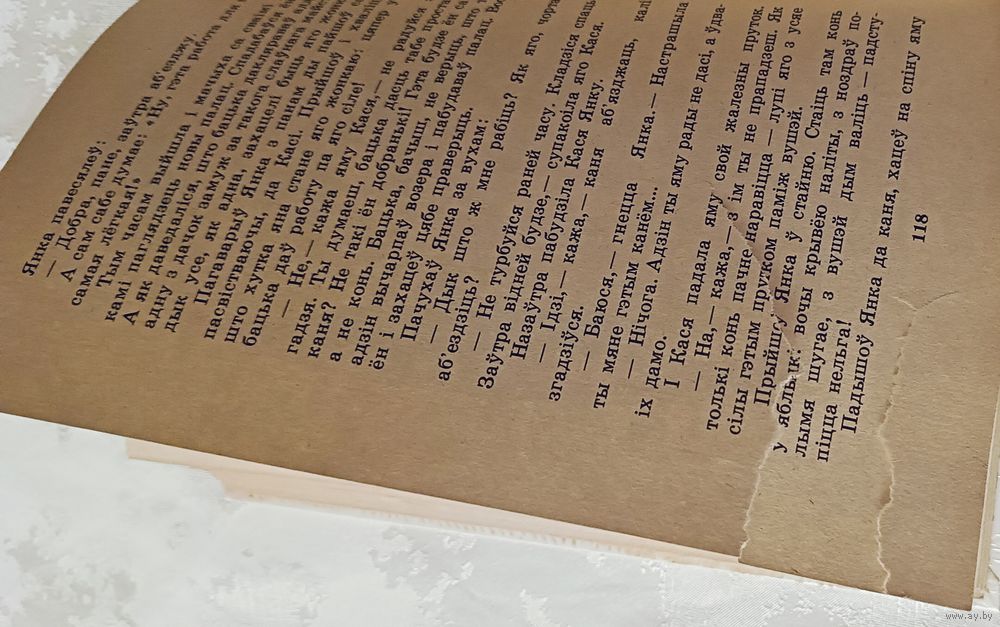 Янка павесялеў:
— Добра, пане, заўтра аб'езжу.
А сам сабе думае: «Ну, гэта работа для
самая лёгкая!»
Тым часам выйшла і мачыха са сваімі
камі паглядзець новы палац. Спадабаўся
адну з дачок замуж за такога слаўнага
А як даведаліся, што бацька
дык усе, як адна, захацелі быць яго
Пагаварыў Янка з панам ды пайшоў
пасвістваючы, да Касі. Прыйшоў і хваліцца
што хутка яна стане яго жонкаю:
бацька даў работу па яго сіле!
— Не,— кажа яму Кася,— не радуйся
гадзя. Ты думаеш, бацька дасць табе проста
каня? Не такі ён добранькі! Гэта будзе ён са
а не конь. Бацька, бачыш, не верыць, што
адзін вычарпаў возера і пабудаваў палац.
ён і захацеў цябе праверыць.
Пачухаў Янка за вухам:
— Дык што ж мне рабіць? Як яго, чорта
аб'ездзіць?
— Не турбуйся раней часу. Кладзіся спаць.
Заўтра відней будзе,— супакоіла яго Кася.
Назаўтра пабудзіла Кася Янку.
— Ідзі,— кажа,— каня аб'язджаць, калі
згадзіўся.
— Баюся,— гнецца Янка.— Настрашыла
ты мяне гэтым канём...
— Нічога. Адзін ты яму рады не дасі, а ўдва-
іх дамо.
І Кася падала яму свой жалезны пруток.
— На,— кажа,— з ім ты не прападзеш. Як
толькі конь пачне наравіцца — лупі яго з усяе
сілы гэтым прутком паміж вушэй.
Прыйшоў Янка ў стайню. Стаіць там конь
у яблыкі: вочы крывёю наліты, з ноздраў по-
лымя шугае, з вушэй дым валіць — падсту-
піцца нельга!
Падышоў Янка да каня, хацеў на спіну яму
118
www.ay.by